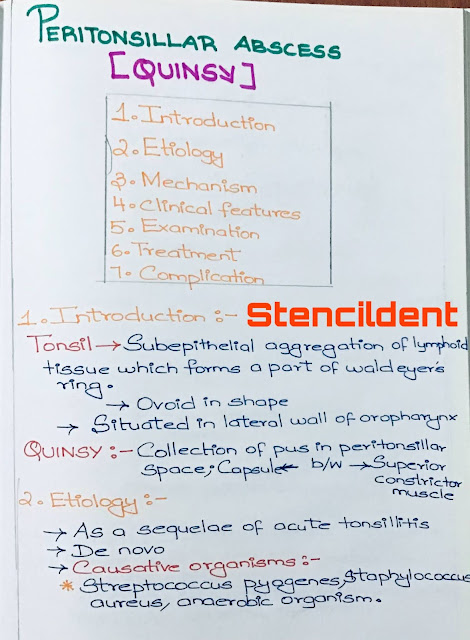 PERITONSILLAR ABSCESS
[QUINSY]
1. Introduction
2. Etiology
3. Mechanism
4. Clinical features
5. Examination
6. Treatment
7. Complication
1. Introduction :-
Stencildent
Tonsil → Subepithelial aggregation of lymphoid
tissue which forms a part of waldeyer's
ring.
→ Ovoid in shape
→ Situated in lateral wall of oropharynx
QUINSY :- Collection of pus in peritonsillar
space; Capsule ← b/w → Superior
constrictor
muscle
2. Etiology :-
→ As a sequelae of acute tonsillitis
→ De novo
→ Causative organisms :-
* Streptococcus pyogenes, Staphylococcus
aureus, anaerobic organism.